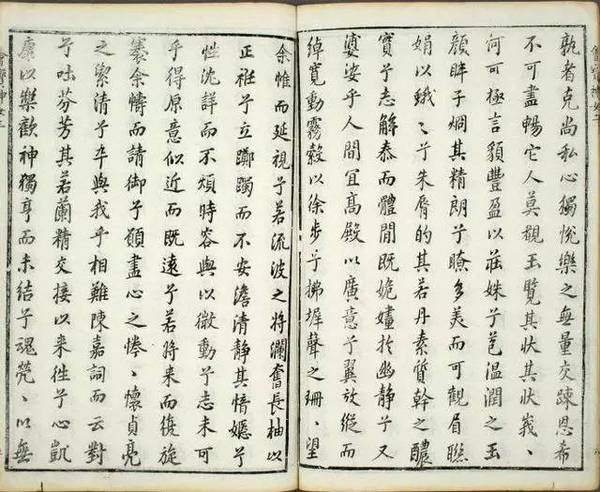 孰者克尚私心獨悅樂之無量交踈恩希
不可盡暢它人莫覩玉覽其狀其狀峩〻
何可極言貌豐盈以莊姝兮苞溫潤之玉
顏眸子烱其精朗兮瞭多美而可觀眉聮
娟以蛾〻兮朱脣的其若丹素質幹之醲
實兮志解泰而體閒既姽嫿扵幽靜兮又
婆娑乎人間冝髙殿以廣意兮翼放縱而
綽寬動霧縠以徐步兮拂墀聲之珊〻望
余惟而延視兮若流波之將瀾奮長柚以
正衽兮立躑躅而不安澹清靜其愔嫕兮
性沈詳而不煩時容與以微動兮志未可
乎得原意似近而既遠兮若將来而復旋
褰余幬而請御兮願盡心之惓〻懷貞亮
之絜清兮卒與我乎相難陳嘉詞而云對
兮吐芬芳其若蘭精交接以来徃兮心凱
康以樂歡神獨亨而未結兮魂煢〻以無